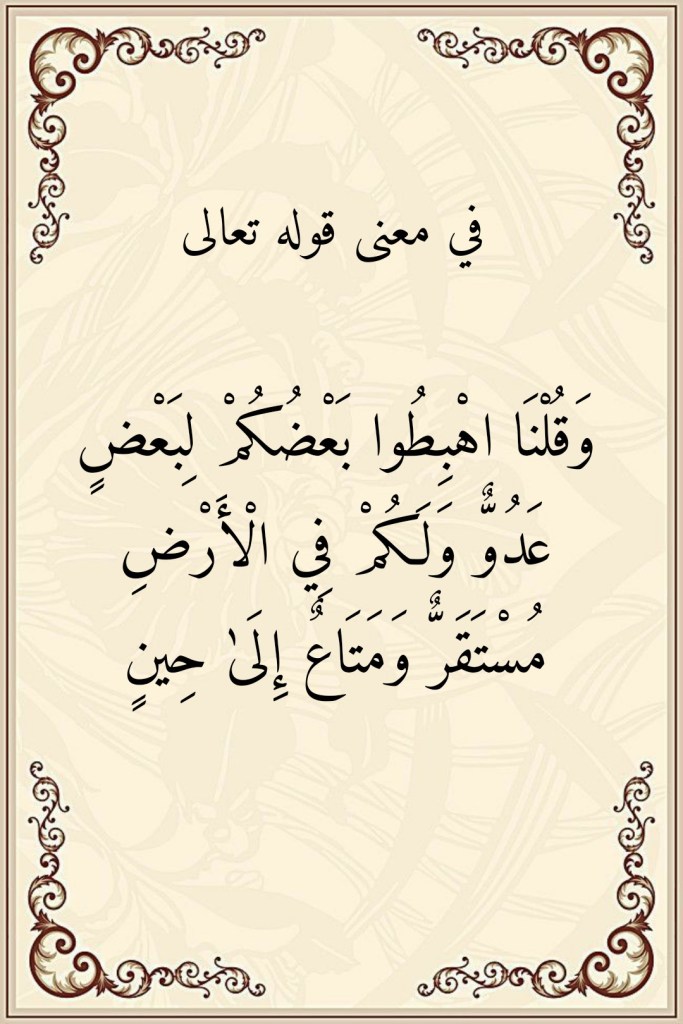 في معنى قوله تعالى
وَقُلْنَا اهْبِطُوا بَعْضُكُمْ لِبَعْضٍ
عَدُوٌّ وَلَكُمْ فِي الْأَرْضِ
مُسْتَقَرٌّ وَمَتَاعٌ إِلَىٰ حِينٍ